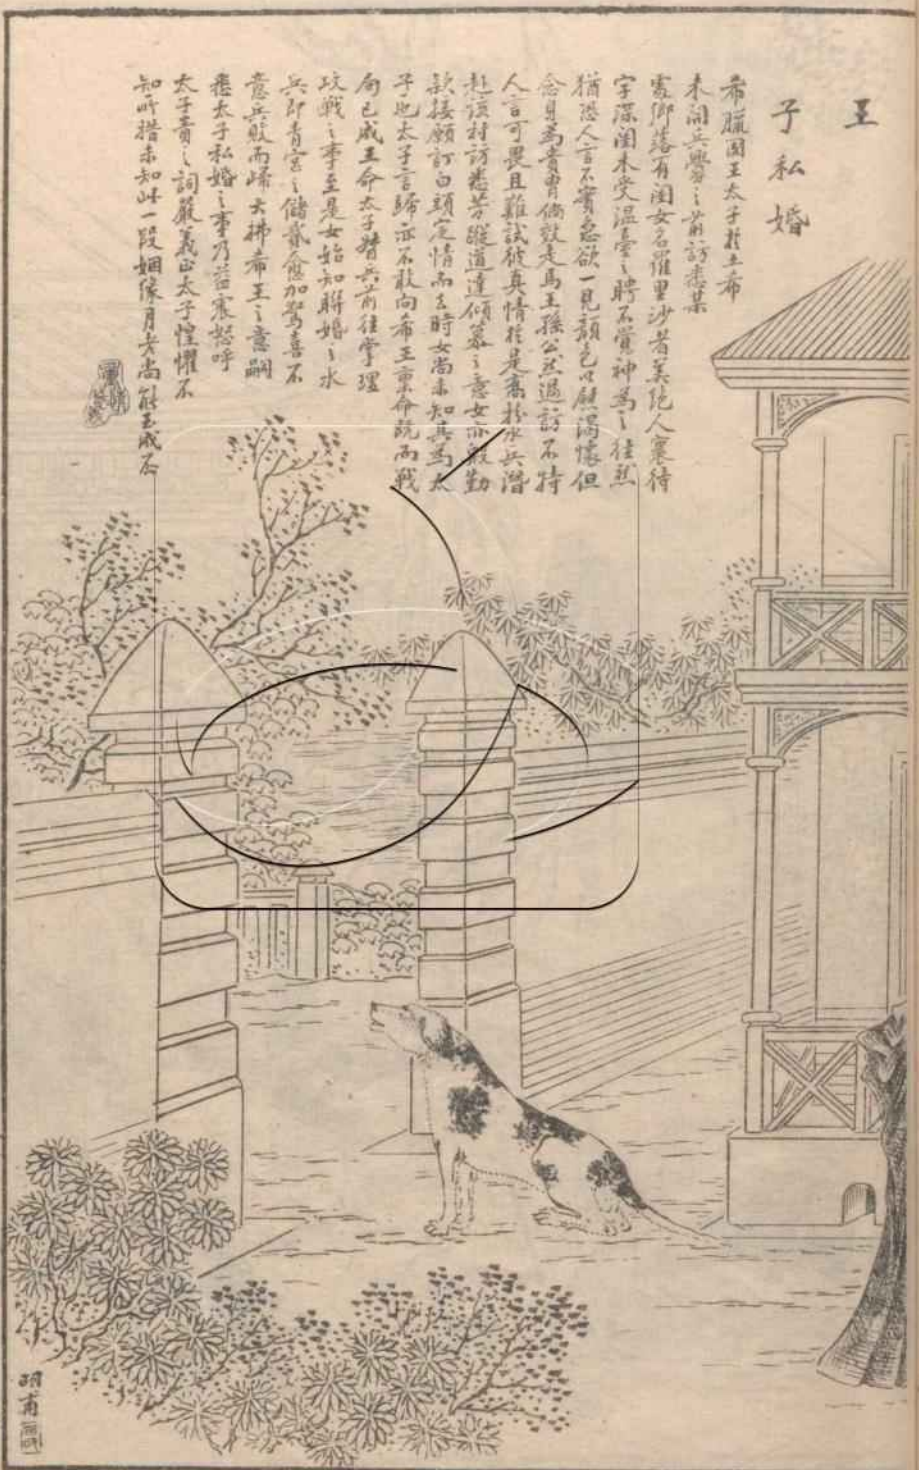 王
子私婚
希臘國王太子於土希
未開兵釁之前訪悉某
處鄉落有閨女名羅里沙者美絕人寰待
字深閨未受溫臺之聘不覺神爲之往然
猶恐人言不實急欲一見顏色以慰渴懷但
念身爲貴冑倘效走馬王孫公然過訪不特
人言可畏且難試彼真情於是喬扮水兵潛
赴該村訪悉芳蹤道達傾慕之意女亦殷勤
款接願訂白頭定情而去時女尚未知其爲太
子也太子言歸亦不敢向希王稟命旣而戰
局已成王命太子督兵前往掌理
攻戰之事至是女始知聯婚之水
兵即青宮之儲貳愈加驚喜不
意兵敗而歸大拂希王之意嗣
悉太子私婚之事乃益震怒呼
太子責之詞嚴義正太子惶懼不
知所措未知此一段姻緣月老尚能玉成否
明甫